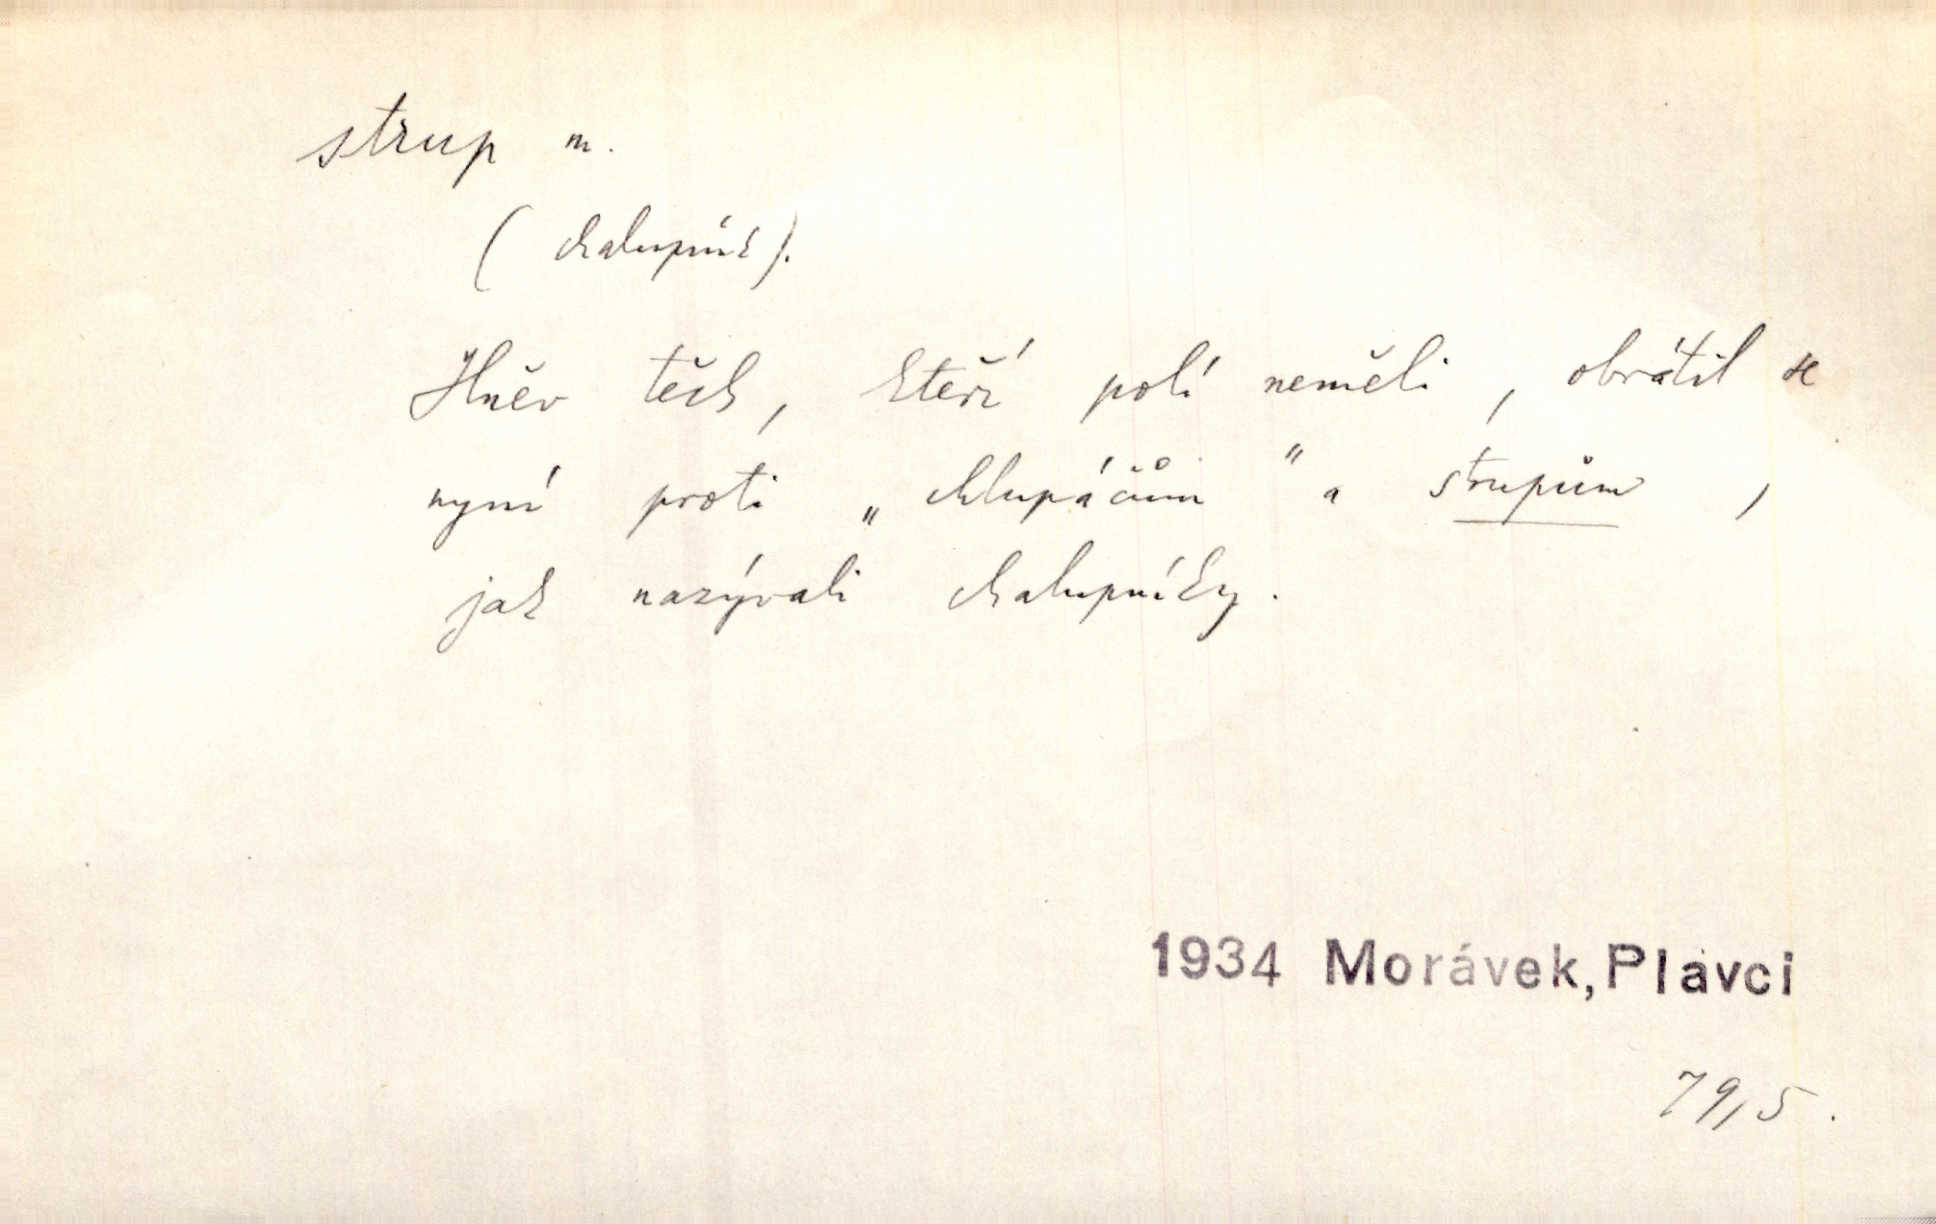 strup m.
(chalupník).
Hněv těch, kteří polí neměli, obrátil se
nyní proti „chlupáčům" a strupům,
jak nazývali chalupníky.
1934 Morávek, Plavci
79,5.